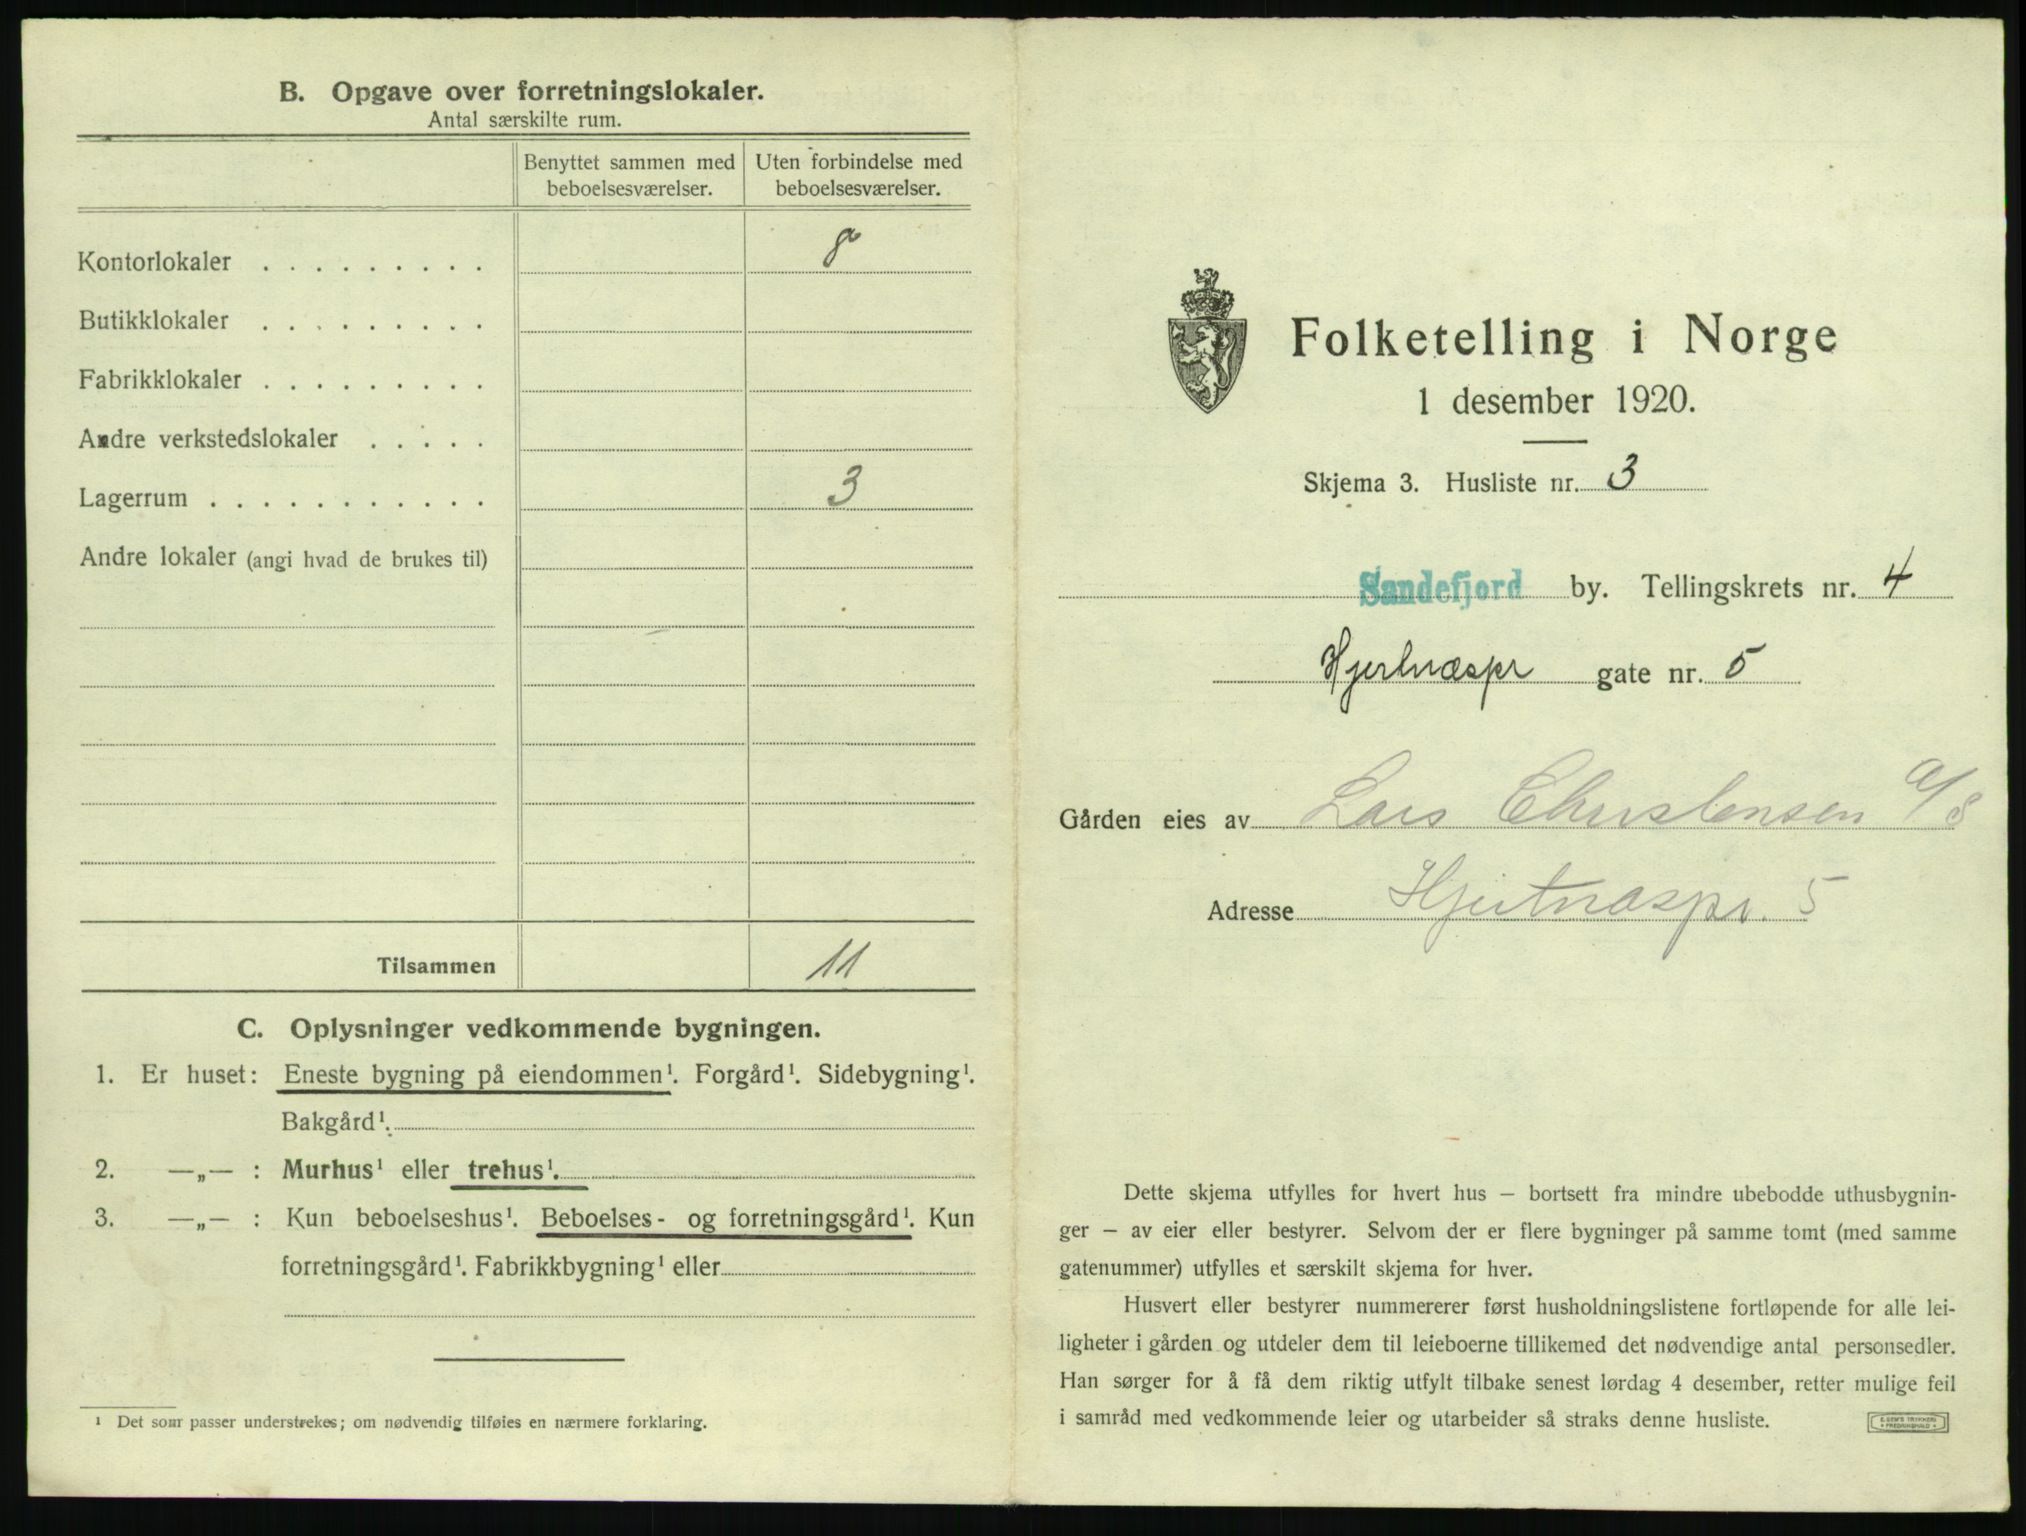 B. Opgave over forretningslokaler.
Antal særskilte rum.
Benyttet sammen med beboelsesværelser.
Uten forbindelse med beboelsesværelser.
Kontorlokaler . . . . . . . . . 8
Butikklokaler . . . . . . . . .
Fabrikklokaler . . . . . . . . .
Andre verkstedslokaler . . . . .
Lagerrum . . . . . . . . . . . 3
Andre lokaler (angi hvad de brukes til)
Tilsammen 11
C. Oplysninger vedkommende bygningen.
1. Er huset: Eneste bygning på eiendommen¹. Forgård¹. Sidebygning¹.
Bakgård¹.
2. —„— : Murhus¹ eller trehus¹.
3. —„— : Kun beboelseshus¹. Beboelses- og forretningsgård¹. Kun
forretningsgård¹. Fabrikkbygning¹ eller
¹ Det som passer understrekes; om nødvendig tilføies en nærmere forklaring.
Folketelling i Norge
1 desember 1920.
Skjema 3. Husliste nr. 3
Sandefjord by. Tellingskrets nr. 4
Hjertnæspr gate nr. 5
Gården eies av Lars Christensen A/S
Adresse Hjertnæspr. 5
Dette skjema utfylles for hvert hus – bortsett fra mindre ubebodde uthusbygnin-
ger – av eier eller bestyrer. Selvom der er flere bygninger på samme tomt (med samme
gatenummer) utfylles et særskilt skjema for hver.
Husvert eller bestyrer nummererer først husholdningslistene fortløpende for alle lei-
ligheter i gården og utdeler dem til leieboerne tillikemed det nødvendige antal personsedler.
Han sørger for å få dem riktig utfylt tilbake senest lørdag 4 desember, retter mulige feil
i samråd med vedkommende leier og utarbeider så straks denne husliste.